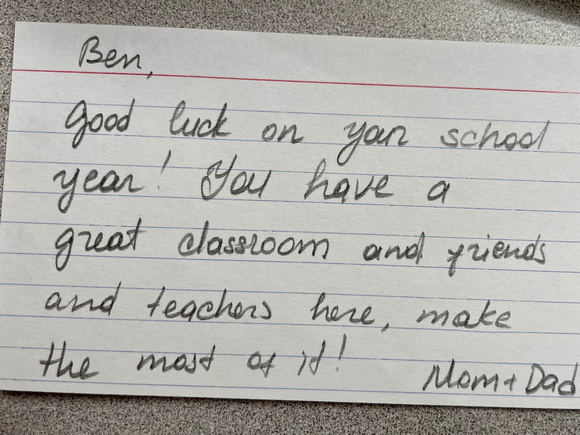 Ben,
Good luck on your school
year! You have a
great classroom and friends
and teachers here, make
the most of it!
Mom + Dad